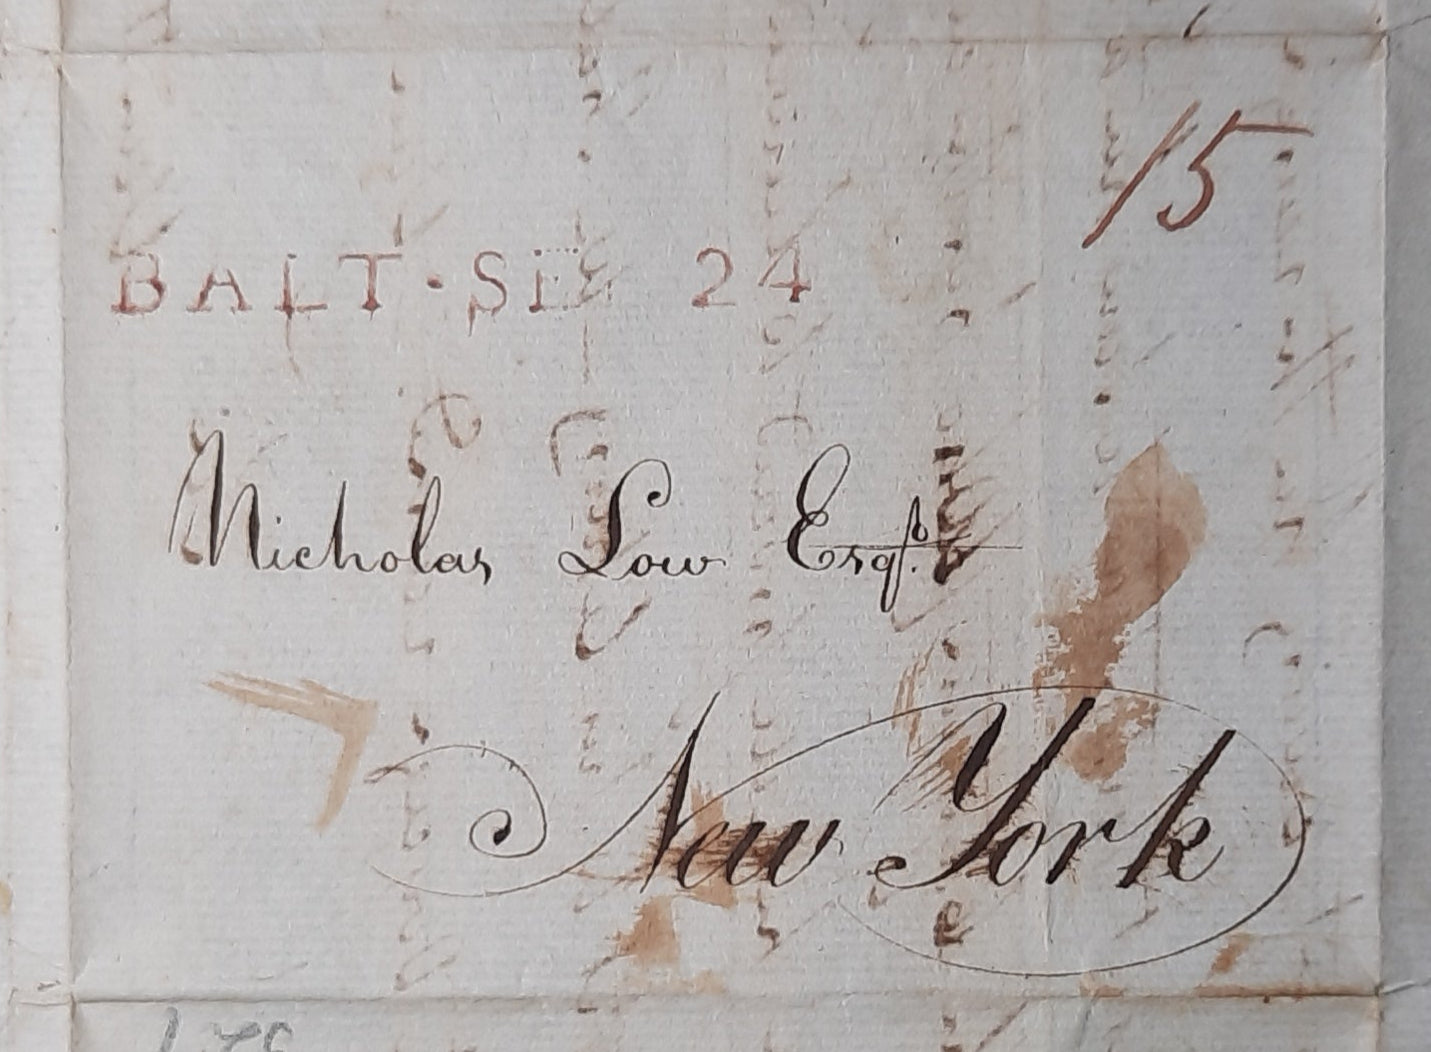 15
BALT·SE 24
Nicholas Low Esqr.
New York